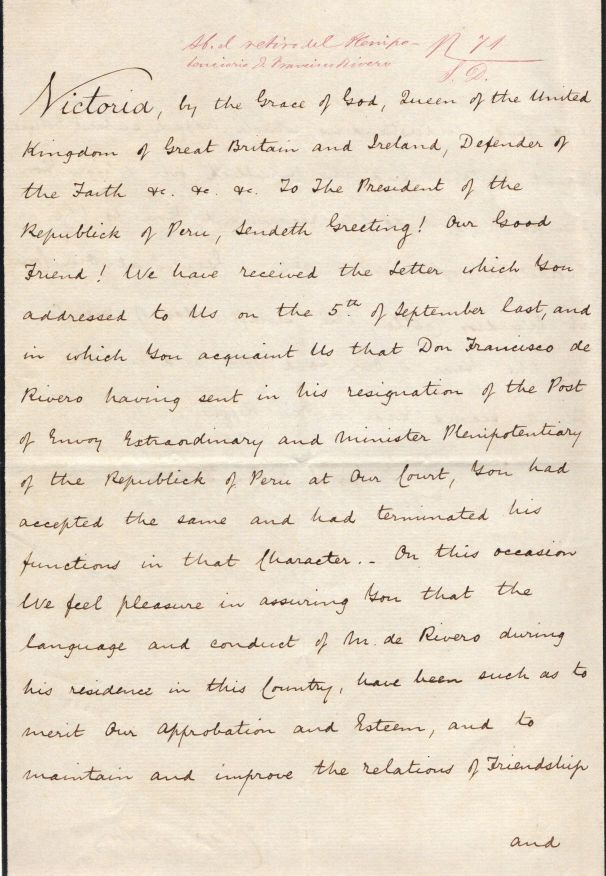 Sb. el retiro del Plenipo-
tenciario D. Francisco Rivero
R 71
S. D.
Victoria, by the Grace of God, Queen of the United
Kingdom of Great Britain and Ireland, Defender of
the Faith &c. &c. &c. To The President of the
Republick of Peru, Sendeth Greeting! Our Good
Friend! We have received the Letter which You
addressed to Us on the 5th of September last, and
in which You acquaint Us that Don Francisco de
Rivero having sent in his resignation of the Post
of Envoy Extraordinary and Minister Plenipotentiary
of the Republick of Peru at Our Court, You had
accepted the same and had terminated his
functions in that Character. - On this occasion
We feel pleasure in assuring You that the
language and conduct of M. de Rivero during
his residence in this Country, have been such as to
merit Our Approbation and Esteem, and to
maintain and improve the relations of Friendship
and